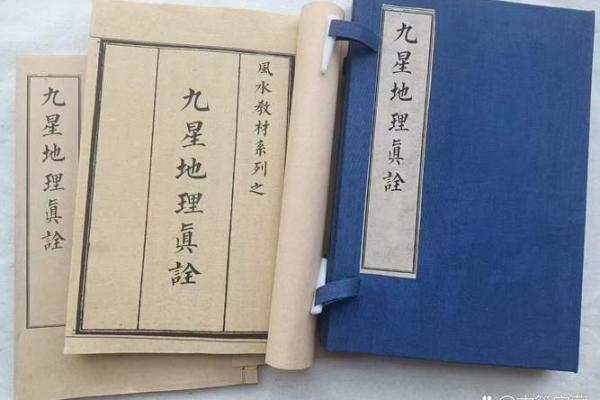 九星地理眞詮
風水教材系列之
九星地理眞詮
九星地理眞詮